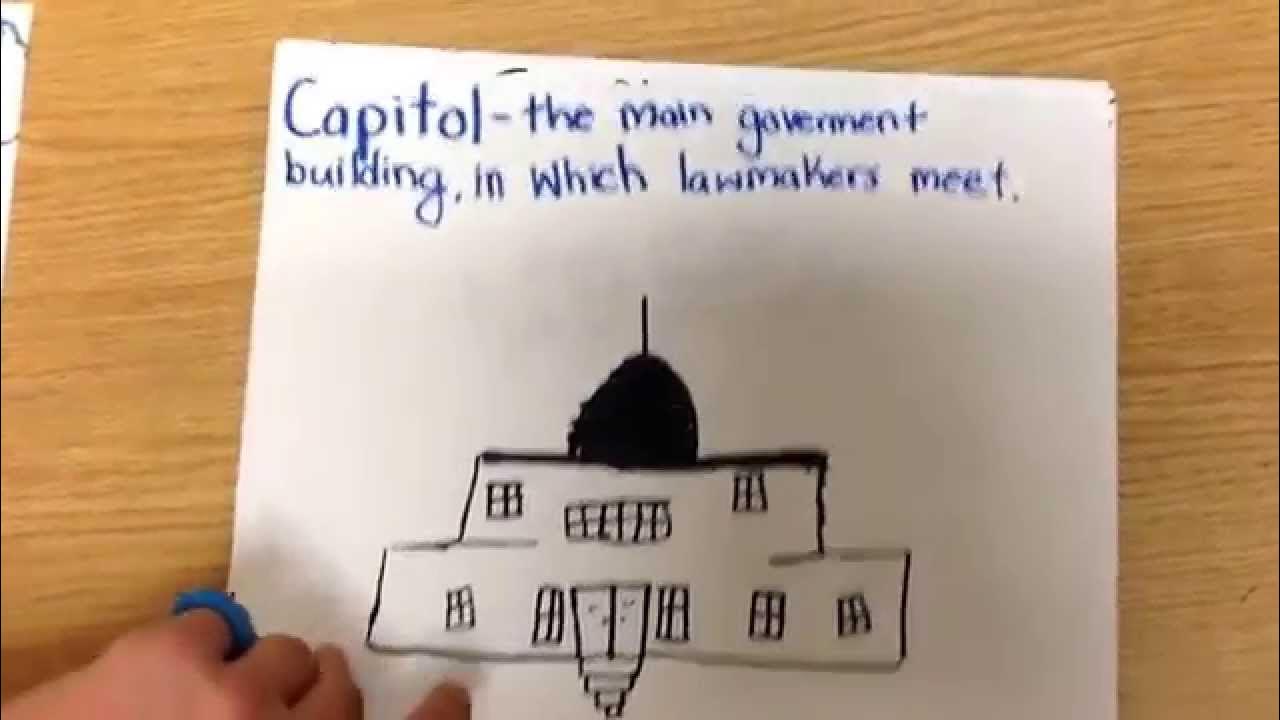 Capitol - the main goverment
building, in which lawmakers meet.